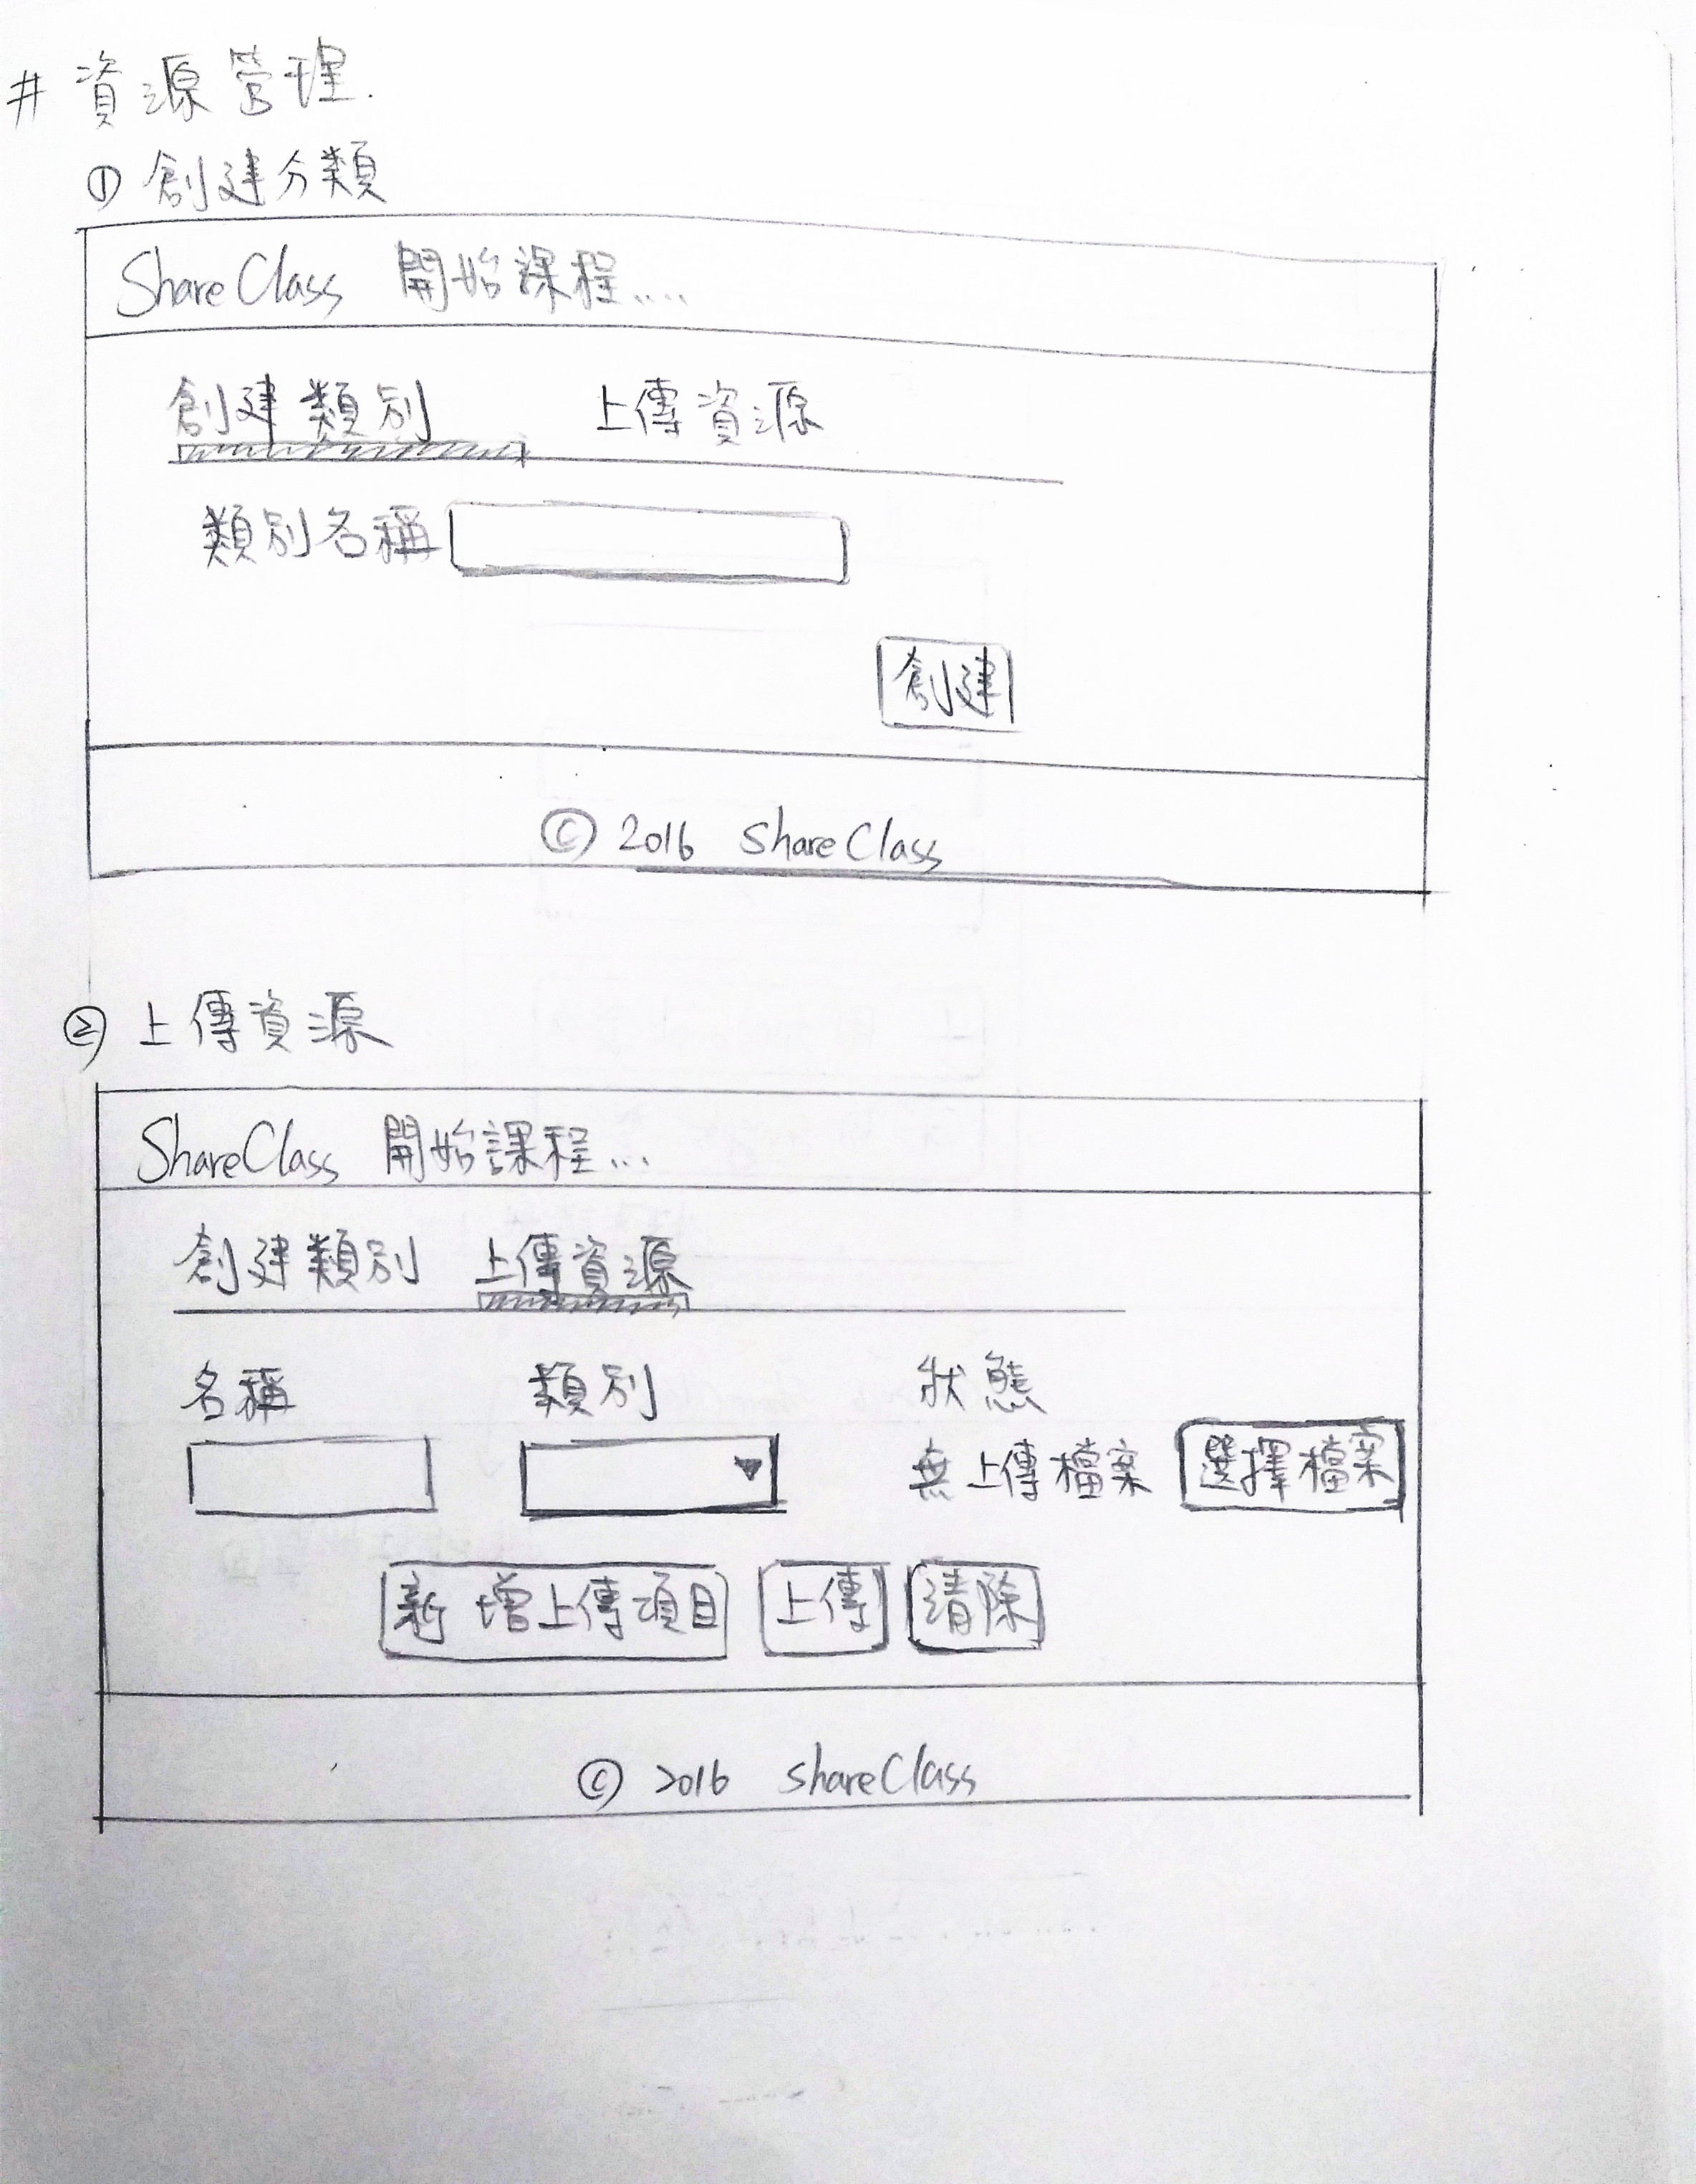 # 資源管理.
① 創建分類
ShareClass 開始課程....
創建類別 上傳資源
類別名稱
創建
© 2016 ShareClass
② 上傳資源
ShareClass 開始課程...
創建類別 上傳資源
名稱 類別 狀態
無上傳檔案 選擇檔案
新增上傳項目 上傳 清除
© 2016 ShareClass